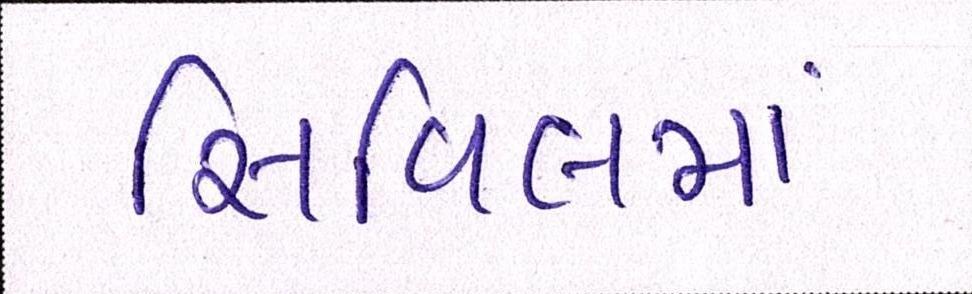 સિવિલમાં